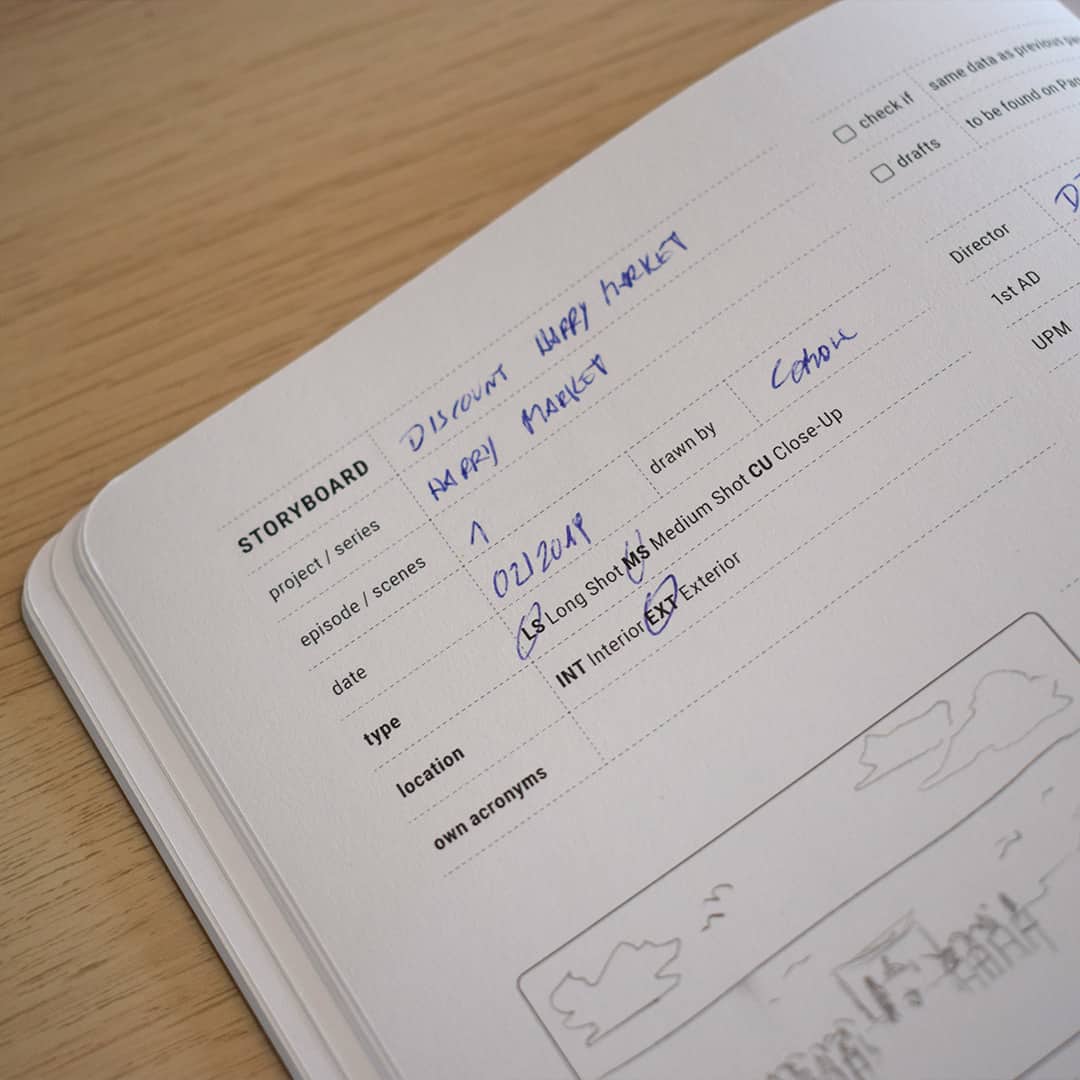 check if same data as previous
drafts to be found on
STORYBOARD DISCOUNT HAPPY MARKET
project / series HAPPY MARKET
episode / scenes 1 drawn by
date 02/2019
type LS Long Shot MS Medium Shot CU Close-Up
location INT Interior EXT Exterior
own acronyms
Director
1st AD
UPM